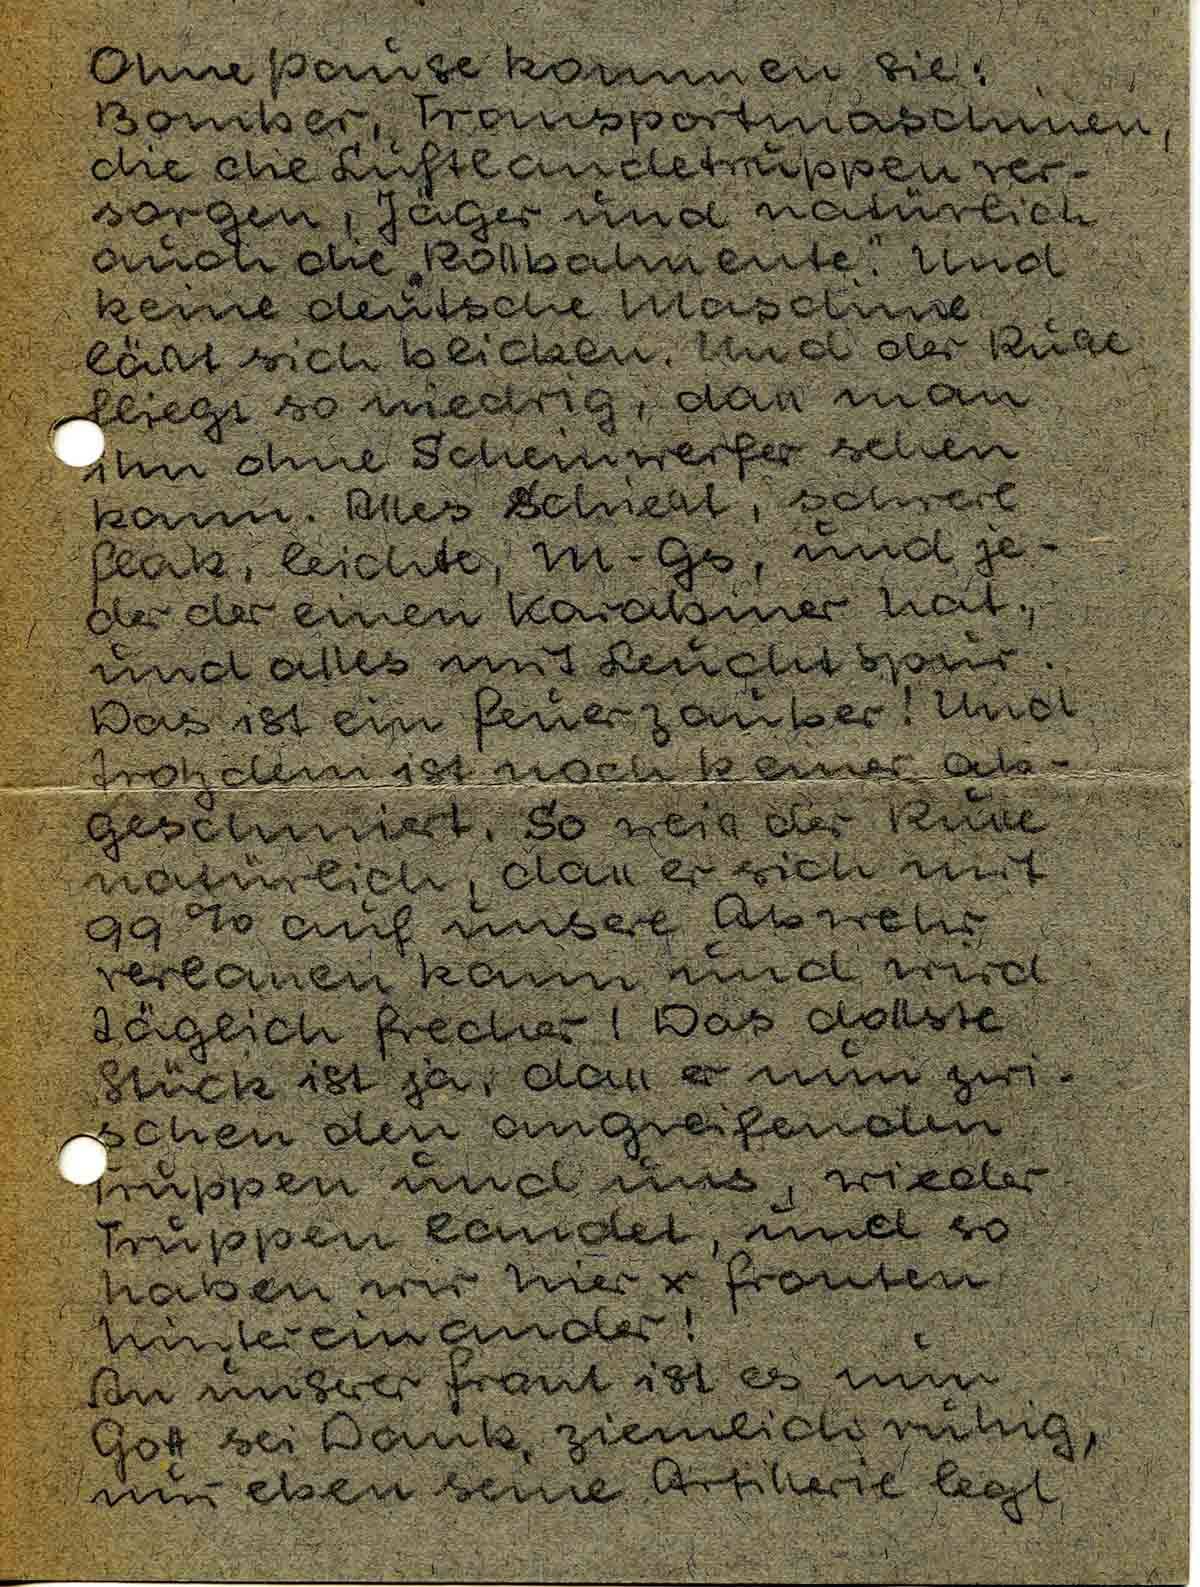 Ohne Pause kommen sie:
Bomber, Transportmaschinen,
die die Luftlandetruppen ver-
sorgen, Jäger und natürlich
auch die „Rollbahnente". Und
keine deutsche Maschine
läßt sich blicken. Und der Russe
fliegt so niedrig, daß man
ihn ohne Scheinwerfer sehen
kann. Alles schießt, schwere
Flak, leichte, M-Gs, und je-
der der einen Karabiner hat,
und alles mit Leuchtspur.
Das ist ein Feuerzauber! Und
trotzdem ist noch keiner ab-
geschmiert. So weiß der Russe
natürlich, daß er sich mit
99 % auf unsere Abwehr
verlassen kann und wird
täglich frecher! Das dollste
Stück ist ja, daß er nun zwi-
schen den angreifenden
Truppen und uns, wieder
Truppen landet, und so
haben wir hier x Fronten
hintereinander!
An unserer Front ist es nun
Gott sei Dank, ziemlich ruhig,
nur eben seine Artillerie legt